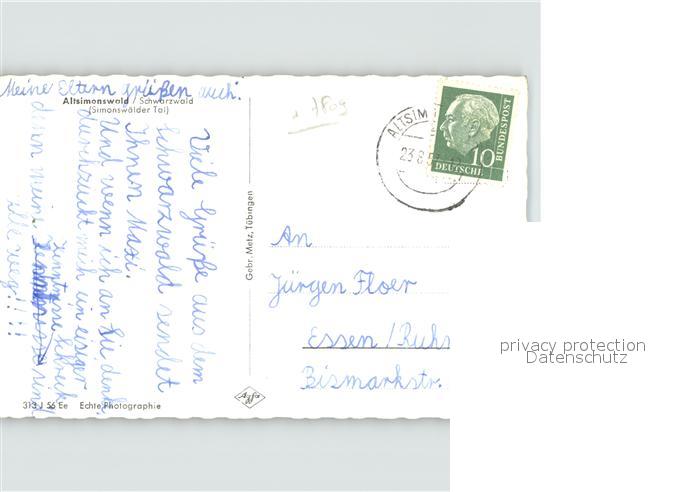 Meine Eltern grüßen auch.
Altsimonswald / Schwarzwald
(Simonswälder Tal)
Viele Grüße aus dem
Schwarzwald sendet
Ihnen Maxi.
Und wenn ich an Sie denk
durchzuckt mich ein eisiger
Schreck
denn meine
sind
alle weg!!!!
1809
Gebr. Metz, Tübingen
ALTSIM
23.8.5
10
DEUTSCHE
BUNDESPOST
An
Jürgen Floer
Essen / Ruhr
Bismarkstr.
313 J 56 Ee Echte Photographie
Agfa
privacy protection
Datenschutz